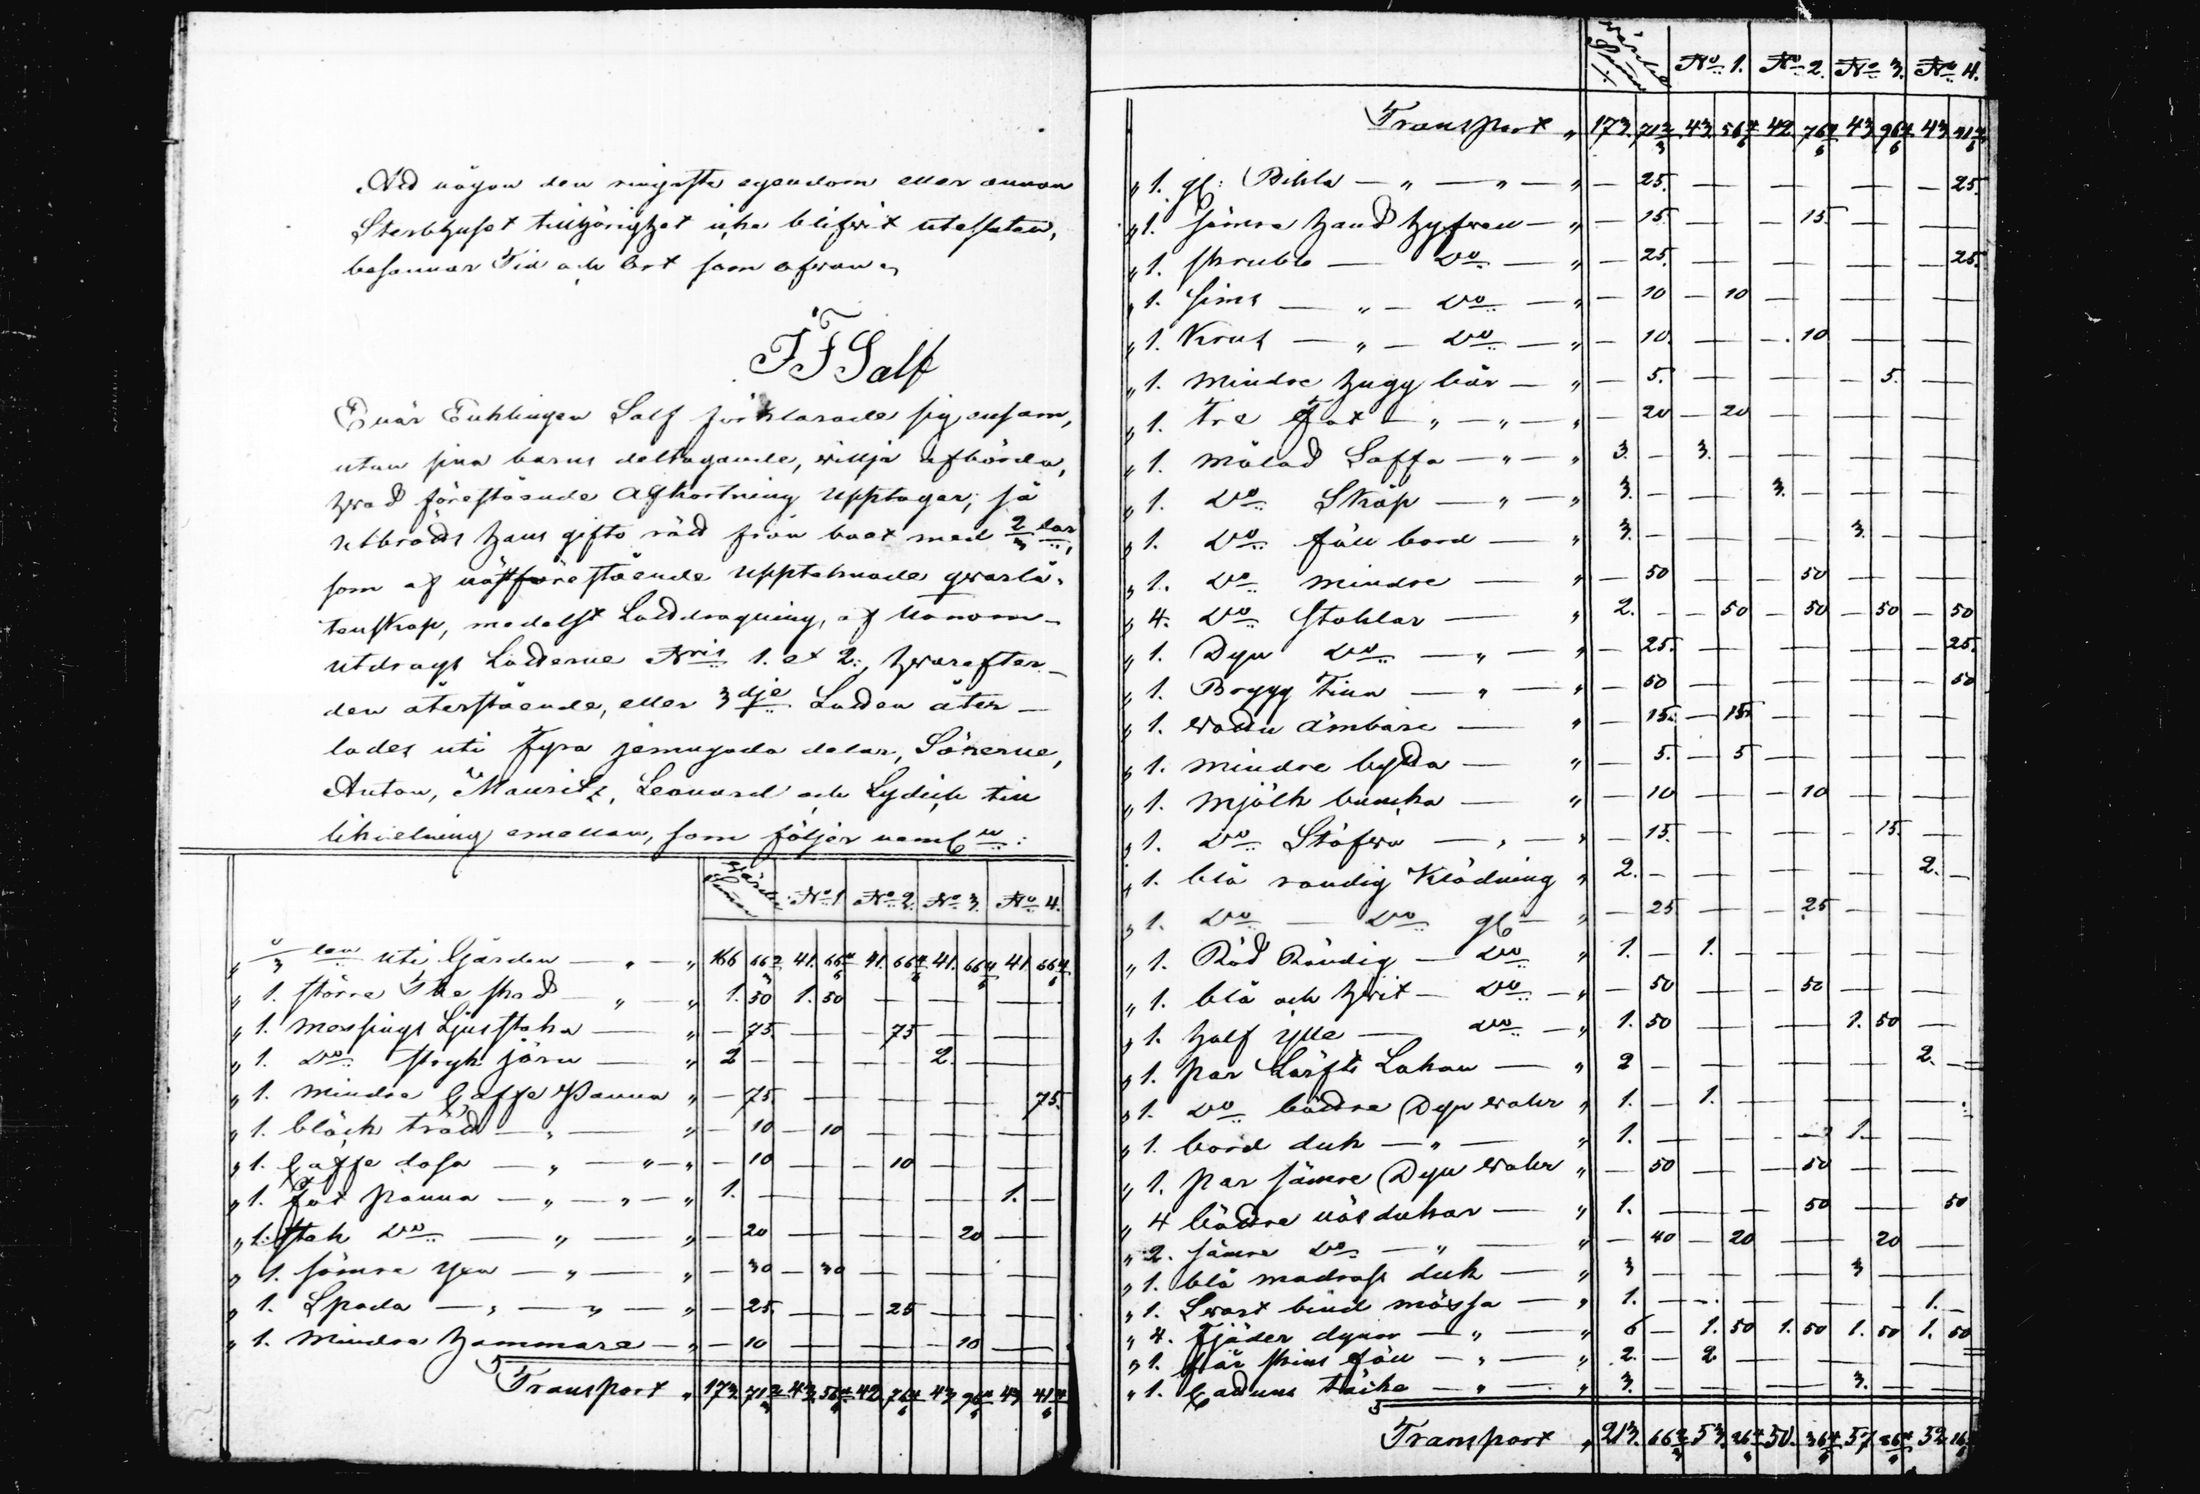 Att någon den ringaste egendom eller annan
Sterbhuset tillhörighet icke blifvit utesluten,
besannar Tid och Ort som ofvan
J F Salf
Enär Enklingen Salf förklarade sig ensam,
utan sina barns deltagande, villja afbörda,
hvad förestående afkortning upptager; så
utbröts hans gifto rätt från boet med 2/3 lar,
som af näst förestående upptecknade qvarlå-
tenskap, medelst Lottdragning, af honom
utdrogs Lotterne N:ris 1. et 2., hvarefter
den återstående, eller 3dje Lotten åter
lades uti fyra jemngoda delar, Sönerne,
Anton, Mauritz, Leonard och Lydich till
likdelning emellan, som följer neml:n:
Värde Summa N:o 1 N:o 2. N:o 3. N:o 4.
uti Gården — „ — „ 166 66 2/3 41. 66 4/6 41. 66 4/6 41. 66 4/6 41 66 4/6
„ 1. större The sked — „ — „ 1. 50 1. 50 — — —
„ 1. Messings Ljusstaka — „ — 75. — — 75 — —
„ 1. D:o stryk järn — „ 2 — — — 2. — —
„ 1. mindre Caffe Panna „ — 75. — — — 75.
„ 1. bläck tratt — „ — „ — 10 — 10 — — —
„ 1. Caffe dosa — „ — „ — „ — 10 — — 10 — —
„ 1. Fot panna — „ — „ — „ 1. — — — — 1. —
„ 1. stek D:o — „ — „ — 20 — — — 20 —
„ 1. sämre Yxa — „ — „ — 30 — 30 — — —
„ 1. Spada — „ — „ — „ — 25. — — 25 — —
„ 1. Mindre hammare — „ — 10 — — — 10 —
Transport „ 173. 71 2/3 43. 56 4/6 42. 76 4/6 43 96 4/6 43 41 4/6
Värde Summa N:o 1. N:o 2. N:o 3. N:o 4.
Transport „ 173. 71 2/3 43. 56 4/6 42. 76 4/6 43. 96 4/6 43 41 4/6
„ 1. gl: Bibla — „ — „ — „ — 25. — — — — 25.
„ 1. sämre hand hyfvel — „ — 15. — — 15. — —
„ 1. skrubb — D:o — „ — 25. — — — — 25.
„ 1. Sims — „ — D:o — „ — 10 — 10 — — —
„ 1. Krus — „ — D:o — „ — 10. — — 10 — —
„ 1. mindre hugg bär — „ — 5. — — — 5. —
„ 1. tre Fat — „ — „ — — 20 — 20 — — —
„ 1. målad Saffa — „ — „ 3. — 3. — — — —
„ 1. D:o Skåp — „ — „ 3. — — 3. — — —
„ 1. D:o fäll bord — „ 3. — — — 3. — —
„ 1. D:o mindre — „ — 50 — — 50 — —
„ 4. D:o Stohlar — „ 2. — — 50 — 50 — 50 — 50
„ 1. Dyn D:o — „ — „ — 25. — — — — 25.
„ 1. Brygg Tina — „ — „ — 50 — — — — 50
„ 1. vatten ämbare — „ — 15. — 15. — — —
„ 1. mindre bytta — „ — 5. — 5 — — —
„ 1. mjölk bunka — „ — 10 — — 10 — —
„ 1. D:o Stäfva — „ — „ — 15. — — — 15. —
„ 1. blå randig Klädning „ 2. — — — — 2. —
„ 1. D:o — D:o gl — „ — 25 — — 25 — —
„ 1. Röd Randig — D:o „ 1. — 1. — — — —
„ 1. blå och hvit — D:o — „ — 50 — — 50 — —
„ 1. half ylle — D:o — „ 1. 50 — — 1. 50 —
„ 1. par Lärfts Lakan — „ 2 — — — — 2. —
„ 1. D:o bättre Dyn var „ 1. — 1. — — — —
„ 1. bord duk — „ — „ 1. — — — 1. — —
„ 1. par sämre Dyn var „ — 50 — — 50 — —
„ 4 bättre näs dukar — „ 1. — — 50 — 50
„ 2. sämre D:o — „ — „ — 40 — 20 — 20 —
„ 1. blå madrass duk — „ 3 — — — 3 — —
„ 1. Svart bind mössa — „ 1. — — — — 1. —
„ 4. fjäder dynor — „ — „ 6 — 1. 50 1. 50 1. 50 1. 50
„ 1. får skins fäll — „ — „ 2. — 2 — — —
„ 1. Cattuns täcke — „ — „ 3. — — — 3. — —
Transport „ 213. 66 2/3 53. 26 4/6 50. 36 4/6 57 86 4/6 52 16 4/6